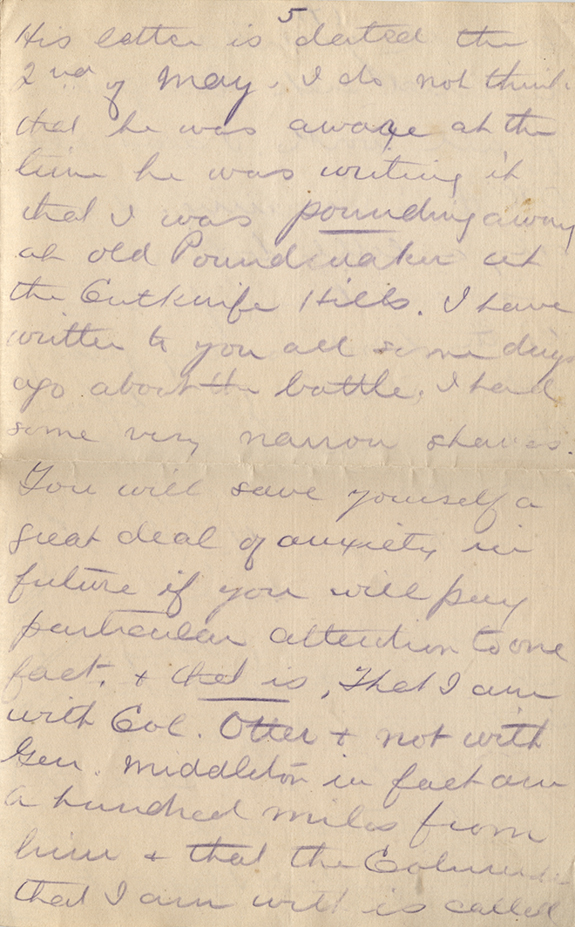 5
His letter is dated the
2nd of May. I do not think
that he was aware at the
time he was writing it
that I was pounding away
at old Poundmaker at
the Cutknife Hills. I have
written to you all some days
ago about the battle. I had
some very narrow shaves.
You will save yourself a
great deal of anxiety in
future if you will pay
particular attention to one
fact. & that is, That I am
with Col. Otter & not with
Gen. Middleton in fact am
a hundred miles from
him & that the Column
that I am with is called